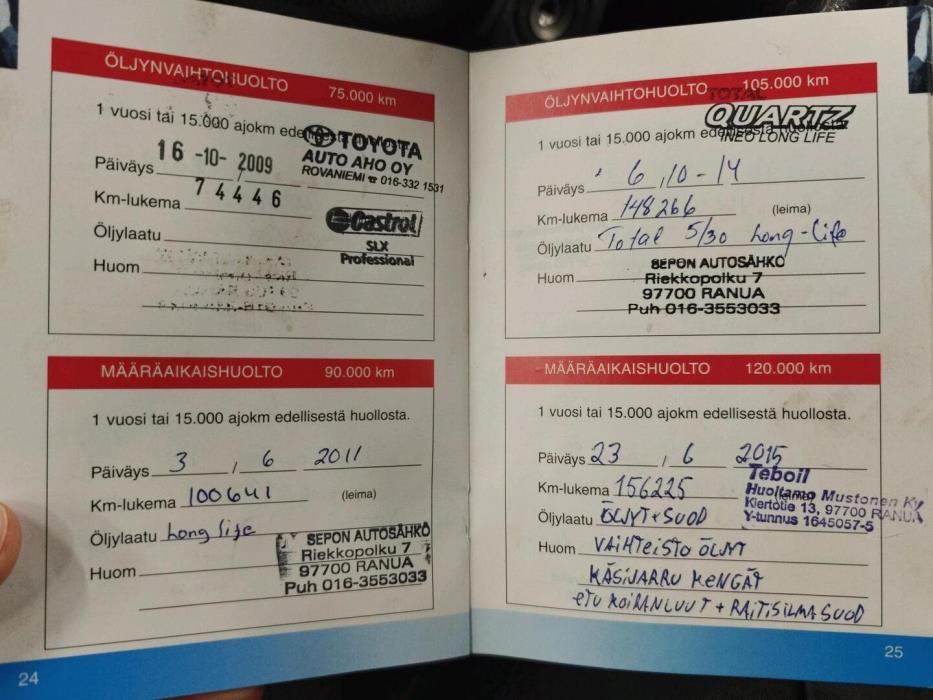 ÖLJYNVAIHTOHUOLTO 75.000 km
1 vuosi tai 15.000 ajokm edellisestä huollosta.
TOYOTA
AUTO AHO OY
ROVANIEMI ☎ 016-332 1531
Päiväys 16 -10- 2009
Km-lukema 74446
Castrol
SLX
Professional
Öljylaatu
Huom
MÄÄRÄAIKAISHUOLTO 90.000 km
1 vuosi tai 15.000 ajokm edellisestä huollosta.
Päiväys 3 / 6 2011
Km-lukema 100641 (leima)
Öljylaatu Long life
SEPON AUTOSÄHKÖ
Riekkopolku 7
97700 RANUA
Puh 016-3553033
Huom
24
ÖLJYNVAIHTOHUOLTO 105.000 km
TOTAL
QUARTZ
INEO LONG LIFE
1 vuosi tai 15.000 ajokm edellisestä huollosta.
Päiväys 6 / 10 - 14
Km-lukema 148266 (leima)
Öljylaatu Total 5/30 Long-life
Huom
SEPON AUTOSÄHKÖ
Riekkopolku 7
97700 RANUA
Puh 016-3553033
MÄÄRÄAIKAISHUOLTO 120.000 km
1 vuosi tai 15.000 ajokm edellisestä huollosta.
Päiväys 23 / 6 2015
Km-lukema 156225 (leima)
Teboil
Huoltamo Mustonen Ky
Kiertotie 13, 97700 RANUA
Y-tunnus 1645057-5
Öljylaatu ÖLJYT + SUOD
Huom VAIHTEISTO ÖLJYT
KÄSIJARRU KENGÄT
ETU KOIRANLUUT + RAITISILMASUOD
25